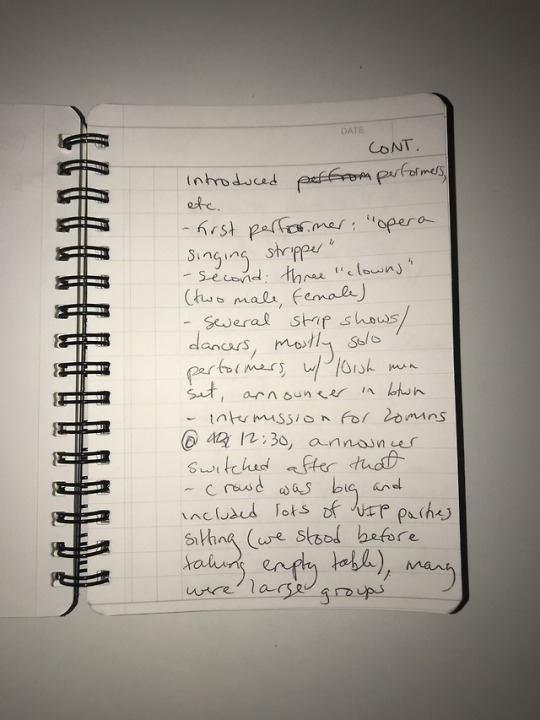 DATE
CONT.
Introduced perfrom performers,
etc.
- first performer: "opera
singing stripper"
- Second: three "clowns"
(two male, female)
- Several strip shows/
dancers, mostly solo
performers, w/ 10ish min
set, announcer in btwn
- Intermission for 20mins
@ 12:30, announcer
switched after that
- crowd was big and
included lots of VIP parties
sitting (we stood before
taking empty table), many
were large groups